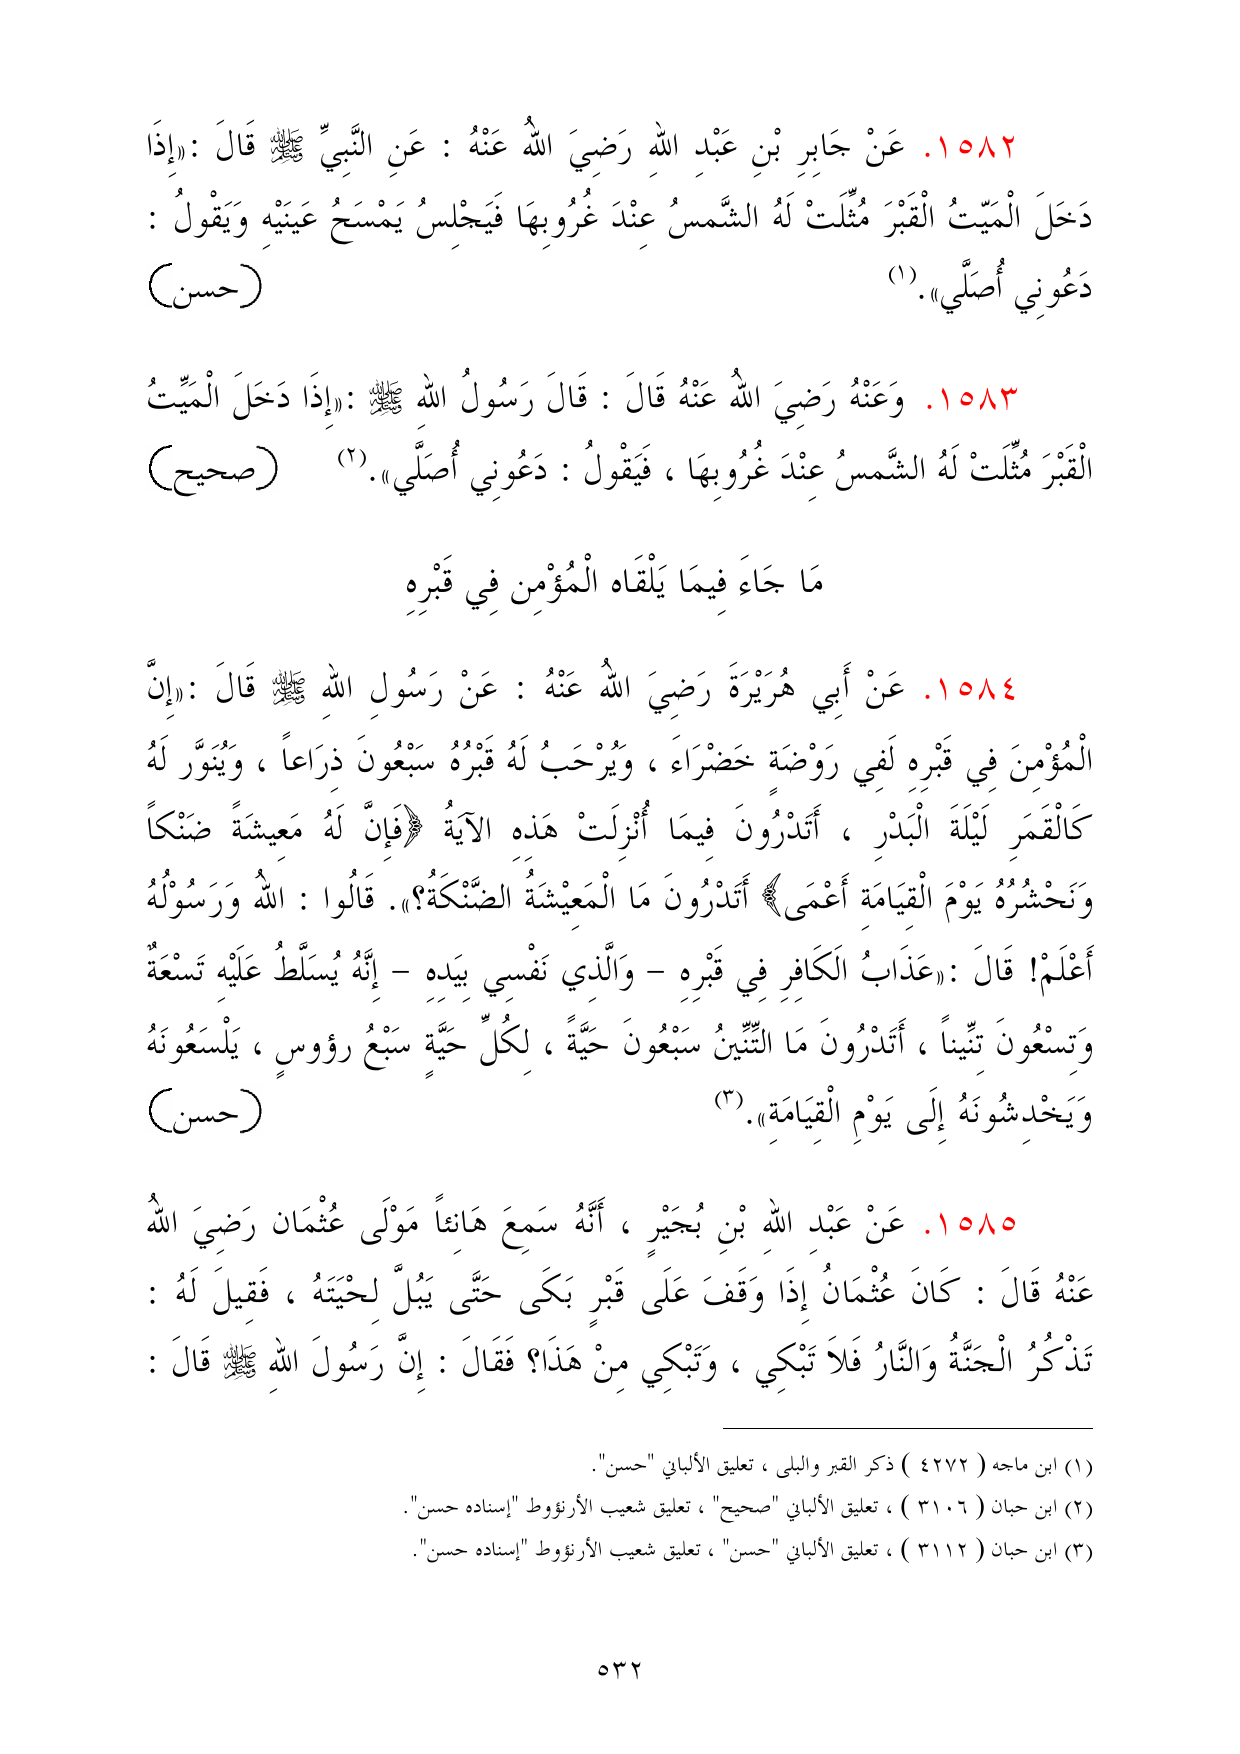 ١٥٨٢. عَنْ جَابِرِ بْنِ عَبْدِ اللهِ رَضِيَ اللهُ عَنْهُ : عَنِ النَّبِيِّ ﷺ قَالَ :«إِذَا
دَخَلَ الْمَيّتُ الْقَبْرَ مُثِّلَتْ لَهُ الشَّمسُ عِنْدَ غُرُوبِهَا فَيَجْلِسُ يَمْسَحُ عَينَيْهِ وَيَقْولُ :
دَعُونِي أُصَلَّي».(١) (حسن)
١٥٨٣. وَعَنْهُ رَضِيَ اللهُ عَنْهُ قَالَ : قَالَ رَسُولُ اللهِ ﷺ :«إِذَا دَخَلَ الْمَيِّتُ
الْقَبْرَ مُثِّلَتْ لَهُ الشَّمسُ عِنْدَ غُرُوبِهَا ، فَيَقْولُ : دَعُونِي أُصَلَّي».(٢) (صحيح)
مَا جَاءَ فِيمَا يَلْقَاه الْمُؤْمِن فِي قَبْرِهِ
١٥٨٤. عَنْ أَبِي هُرَيْرَةَ رَضِيَ اللهُ عَنْهُ : عَنْ رَسُولِ اللهِ ﷺ قَالَ :«إِنَّ
الْمُؤْمِنَ فِي قَبْرِهِ لَفِي رَوْضَةٍ خَضْرَاءَ ، وَيُرْحَبُ لَهُ قَبْرُهُ سَبْعُونَ ذِرَاعاً ، وَيُنَوَّر لَهُ
كَالْقَمَرِ لَيْلَةَ الْبَدْرِ ، أَتَدْرُونَ فِيمَا أُنْزِلَتْ هَذِهِ الآيَةُ ﴿فَإِنَّ لَهُ مَعِيشَةً ضَنْكاً
وَنَحْشُرُهُ يَوْمَ الْقِيَامَةِ أَعْمَى﴾ أَتَدْرُونَ مَا الْمَعِيْشَةُ الضَّنْكَةُ؟». قَالُوا : اللهُ وَرَسُوْلُهُ
أَعْلَمْ! قَالَ :«عَذَابُ الَكَافِرِ فِي قَبْرِهِ – وَالَّذِي نَفْسِي بِيَدِهِ – إِنَّهُ يُسَلَّطُ عَلَيْهِ تَسْعَةٌ
وَتِسْعُونَ تِنِّيناً ، أَتَدْرُونَ مَا التِّنِّينُ سَبْعُونَ حَيَّةً ، لِكُلِّ حَيَّةٍ سَبْعُ رؤوسٍ ، يَلْسَعُونَهُ
وَيَخْدِشُونَهُ إِلَى يَوْمِ الْقِيَامَةِ».(٣) (حسن)
١٥٨٥. عَنْ عَبْدِ اللهِ بْنِ بُجَيْرٍ ، أَنَّهُ سَمِعَ هَانِئاً مَوْلَى عُثْمَان رَضِيَ اللهُ
عَنْهُ قَالَ : كَانَ عُثْمَانُ إِذَا وَقَفَ عَلَى قَبْرٍ بَكَى حَتَّى يَبُلَّ لِحْيَتَهُ ، فَقِيلَ لَهُ :
تَذْكُرُ الْجَنَّةُ وَالنَّارُ فَلاَ تَبْكِي ، وَتَبْكِي مِنْ هَذَا؟ فَقَالَ : إِنَّ رَسُولَ اللهِ ﷺ قَالَ :
(١) ابن ماجه ( ٤٢٧٢ ) ذكر القبر والبلى ، تعليق الألباني "حسن".
(٢) ابن حبان ( ٣١٠٦ ) ، تعليق الألباني "صحيح" ، تعليق شعيب الأرنؤوط "إسناده حسن".
(٣) ابن حبان ( ٣١١٢ ) ، تعليق الألباني "حسن" ، تعليق شعيب الأرنؤوط "إسناده حسن".
٥٣٢